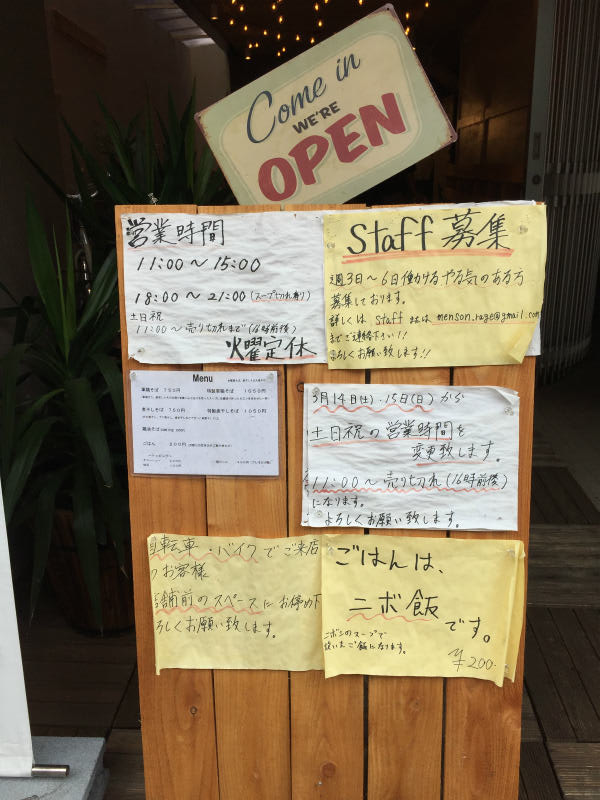 Come in
WE'RE
OPEN
営業時間
11:00〜15:00
18:00〜21:00(スープ切れ有り)
土日祝
11:00〜売り切れまで(16時前後)
火曜定休
Staff募集
週3日〜6日働けるやる気のある方
募集しております。
詳しくは staff または menson.rage@gmail.com
までご連絡下さい!!
よろしくお願い致します!!
Menu
軍鶏そば 750円
特製軍鶏そば 1050円
煮干しそば 750円
特製煮干しそば 1050円
coming soon
ごはん 200円
トッピング
3月14日(土)・15日(日)から
土日祝の営業時間を
変更致します。
11:00〜売り切れ(16時前後)
になります。
よろしくお願い致します。
自転車・バイクでご来店
のお客様
店舗前のスペースにお停め下
ろしくお願い致します。
ごはんは、
ニボ飯
です。
ニボシのスープで
炊いたご飯になります。
¥200-